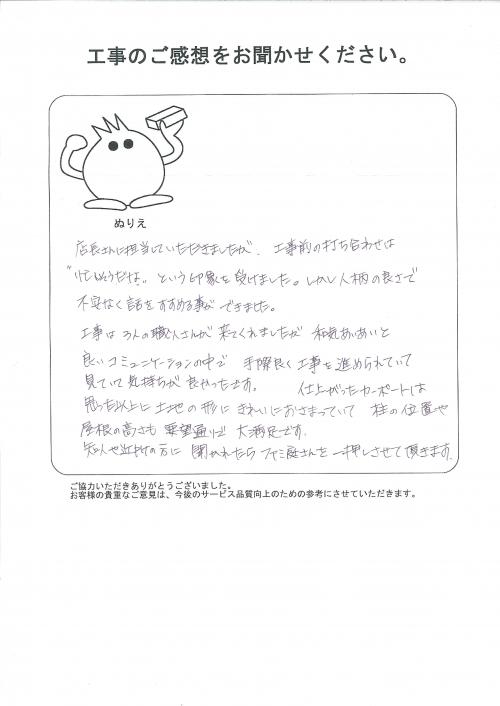 工事のご感想をお聞かせください。
ぬりえ
店長さんに担当していただきましたが、工事前の打ち合わせは
"忙しそうだな"という印象を受けました。しかし人柄の良さで
不安なく話をすすめる事ができました。
工事は3人の職人さんが来てくれましたが 和気あいあいと
良いコミュニケーションの中で 手際良く工事を進められていて
見ていて気持ちが良かったです。 仕上がったカーポートは
思った以上に土地の形にきれいにおさまっていて 柱の位置や
屋根の高さも要望通りで大満足です。
知人や近所の方に聞かれたらファミ庭さんを一押しさせて頂きます。
ご協力いただきありがとうございました。
お客様の貴重なご意見は、今後のサービス品質向上のための参考にさせていただきます。